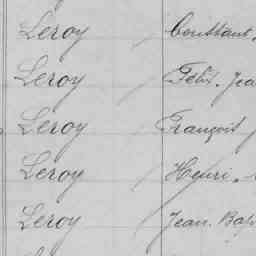 Leroy Constant,
Leroy Félix. Jea
Leroy François J
Leroy Henri.
Leroy Jean. Bap